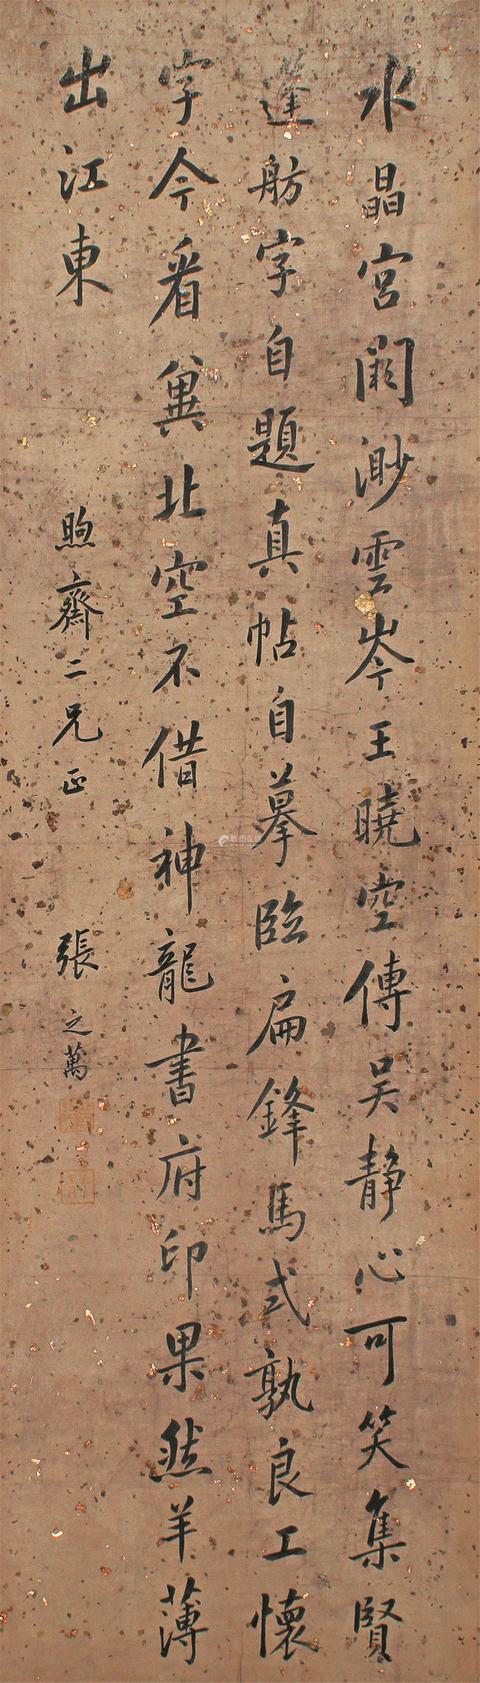 水晶宮闕渺雲岑王曉空傳吴静心可笑集賢
篷舫字自題真帖自摹臨扁鋒馬式孰良工懷
字今看冀北空不借神龍書府印果然羊薄
出江東
煦齋二兄正
張之萬